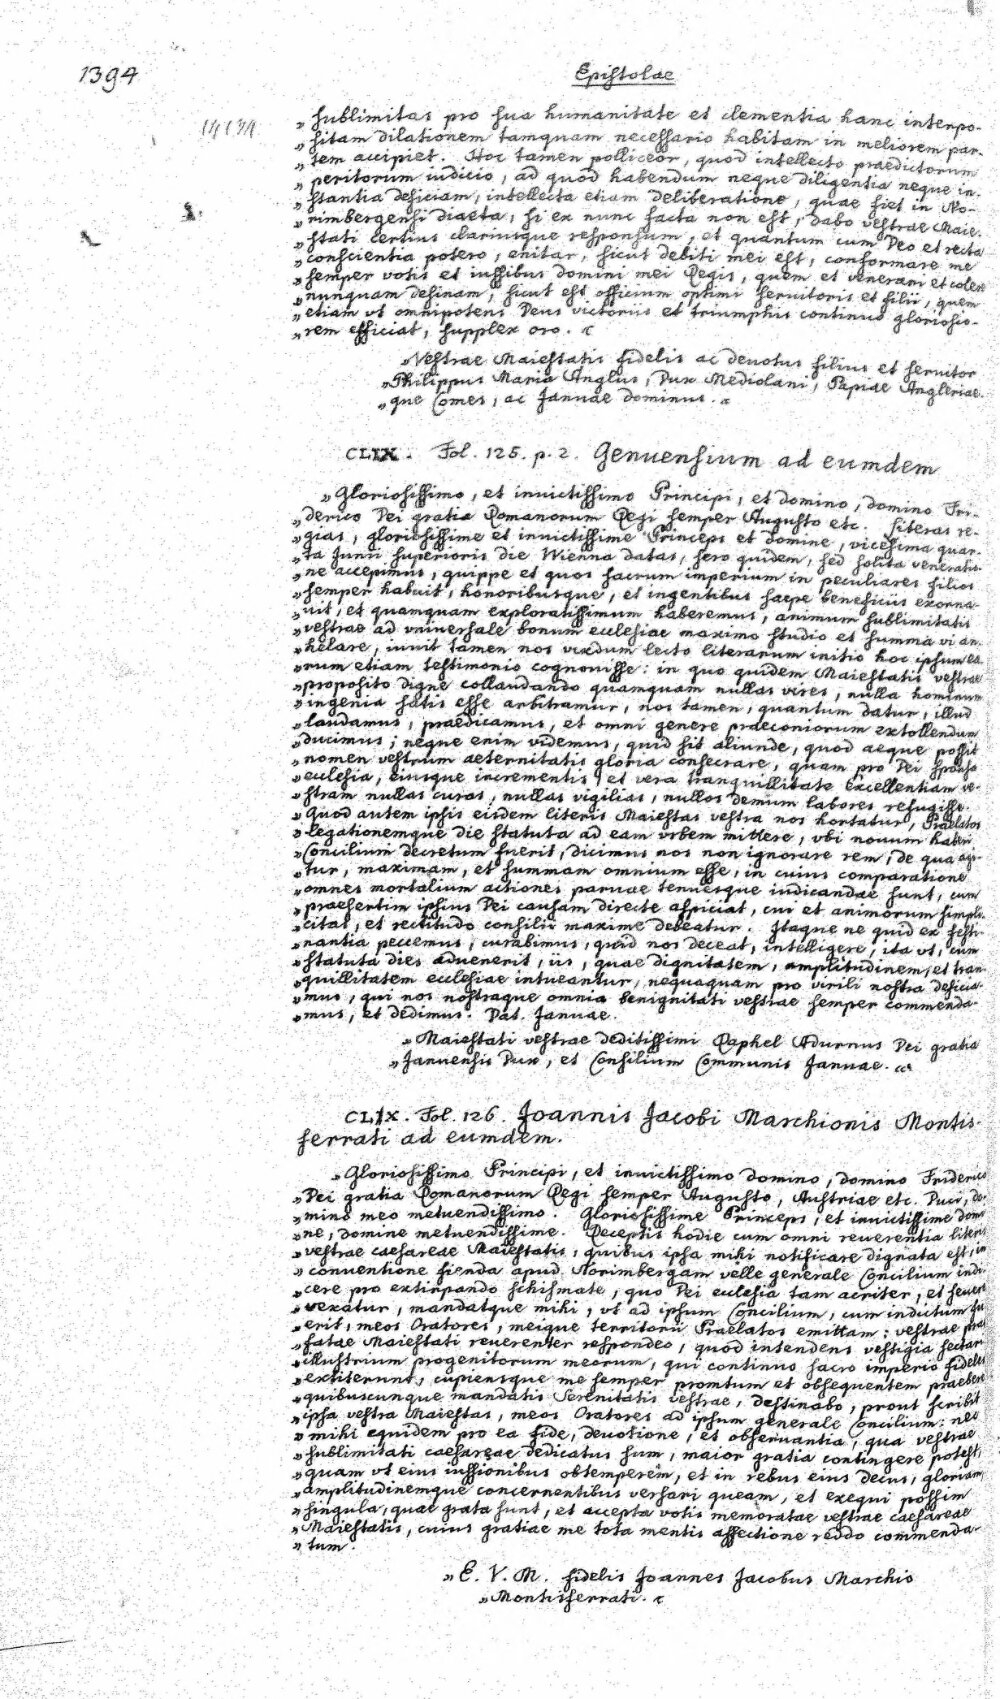 1394
Epistolae
„sublimitas pro sua humanitate et clementia hanc intenpo-
„sitam dilationem tamquam necessario habitam in meliorem par-
„tem accipiet. Hoc tamen polliceor, quod intellecto praedictorum
„peritorum iudicio, ad quod habendum neque diligentia neque in-
„stantia deficiam, intellecta etiam deliberatione, quae fiet in No-
„rimbergensi diaeta, si ex nunc facta non est, dabo vestrae Maie-
„stati certius clariusque responsum, et quantum cum Deo et recta
„conscientia potero, enitar, sicut debiti mei est, conformare me
„semper votis et iussibus domini mei Regis, quem et veneram et colere
„nunquam desinam, sicut est officium optimi servitoris et filii, quem
„etiam vt omnipotens Deus victoriis et triumphis continuo gloriosio-
„rem efficiat, supplex oro. “
„Vestrae Maiestatis fidelis ac deuotus filius et seruitor
„Philippus Maria Anglus, Dux Mediolani, Papiae Angleriae-
„que Comes, ac Januae dominus. “
CLIX. Fol. 125. p. 2. Genuensium ad eumdem
„Gloriosissimo, et inuictissimo Principi, et domino, domino Fri-
„derico Dei gratia Romanorum Regi semper Augusto etc. Literas re-
„gias, gloriosissime et inuictissime Princeps et domine, vicesima quar-
„ta Junii superioris die Wienna datas, sero quidem, sed solita veneratio-
„ne accepimus, quippe et quos sacrum imperium in peculiares filios
„semper habuit, honoribusque, et ingentibus saepe beneficiis exorna-
„uit, et quamquam exploratissimum haberemus, animum sublimitatis
„vestrae ad vniuersale bonum ecclesiae maximo studio et summa vi an-
„helare, iuuit tamen nos vixdum lecto literarum initio hoc ipsum ea-
„rum etiam testimonio cognouisse: in quo quidem Maiestatis vestrae
„proposito digne collaudando quamquam nullas vires, nulla hominum
„ingenia satis esse arbitramur, nos tamen, quantum datur, illud
„laudamus, praedicamus, et omni genere praeconiorum extollendum
„ducimus; neque enim videmus, quid sit aliunde, quod aeque possit
„nomen vestrum aeternitatis gloria consecrare, quam pro Dei sponsa
„ecclesia, eiusque incrementis, et vera tranquillitate excellentiam ve-
„stram nullas curas, nullas vigilias, nullos demum labores refugisse.
„Quod autem ipsis eisdem literis Maiestas vestra nos hortatur, Praelatos
„legationemque die statuta ad eam vrbem mittere, vbi nouum haberi
„Concilium decretum fuerit, dicimus nos non ignorare rem, de qua agi-
„tur, maximam, et summam omnium esse, in cuius comparatione
„omnes mortalium actiones paruae tenuesque iudicandae sunt, cum
„praesertim ipsius Dei causam directe aspiciat, cui et animorum simpli-
„citas, et rectitudo consilii maxime debeatur. Itaque ne quid ex festi-
„nantia peccemus, curabimus, quid nos deceat, intelligere, ita vt, cum
„statuta dies aduenerit, iis, quae dignitatem, amplitudinem, et tran-
„quillitatem ecclesiae intueantur, nequaquam pro virili nostra deficia-
„mus, qui nos nostraque omnia benignitati vestrae semper commenda-
„mus, et dedimus. Dat. Januae.
„Maiestati vestrae deditissimi Raphel Adurnus Dei gratia
„Januensis Dux, et Consilium Communis Januae. “
CLIX. Fol. 126. Joannis Jacobi Marchionis Montis-
ferrati ad eumdem.
„Gloriosissimo Principi, et inuictissimo domino, domino Friderico
„Dei gratia Romanorum Regi semper Augusto, Austriae etc. Duci, do-
„mino meo metuendissimo. Gloriosissime Princeps, et inuictissime domi-
„ne, Domine metuendissime. Receptis hodie cum omni reuerentia literis
„vestrae caesareae Maiestatis, quibus ipsa mihi notificare dignata est, in
„conuentione fienda apud Norimbergam velle generale Concilium indi-
„cere pro extirpando schismate, quo Dei ecclesia tam acriter, et seuere
„vexatur, mandatque mihi, vt ad ipsum Concilium, cum indictum fu-
„erit, meos Oratores, meique territorii Praelatos emittam: vestrae prae-
„fatae Maiestati reuerenter respondeo, quod intendens vestigia sectari
„illustrium progenitorum meorum, qui continuo sacro imperio fideles
„extiterunt, cupiensque me semper promtum et obsequentem praebere
„quibuscunque mandatis Serenitatis vestrae, destinabo, prout scribit
„ipsa vestra Maiestas, meos Oratores ad ipsum generale Concilium: nec
„mihi equidem pro ea fide, deuotione, et obseruantia, qua vestrae
„sublimitati caesareae dedicatus sum, maior gratia contingere potest,
„quam vt eius iussionibus obtemperem, et in rebus eius decus, gloriam,
„amplitudinemque concernentibus versari queam, et exequi possim
„singula, quae grata sunt, et accepta votis memoratae vestrae caesareae
„Maiestatis, cuius gratiae me tota mentis affectione reddo commenda-
„tum.
„E. V. M. fidelis Joannes Jacobus Marchio
„Montisferrati. “